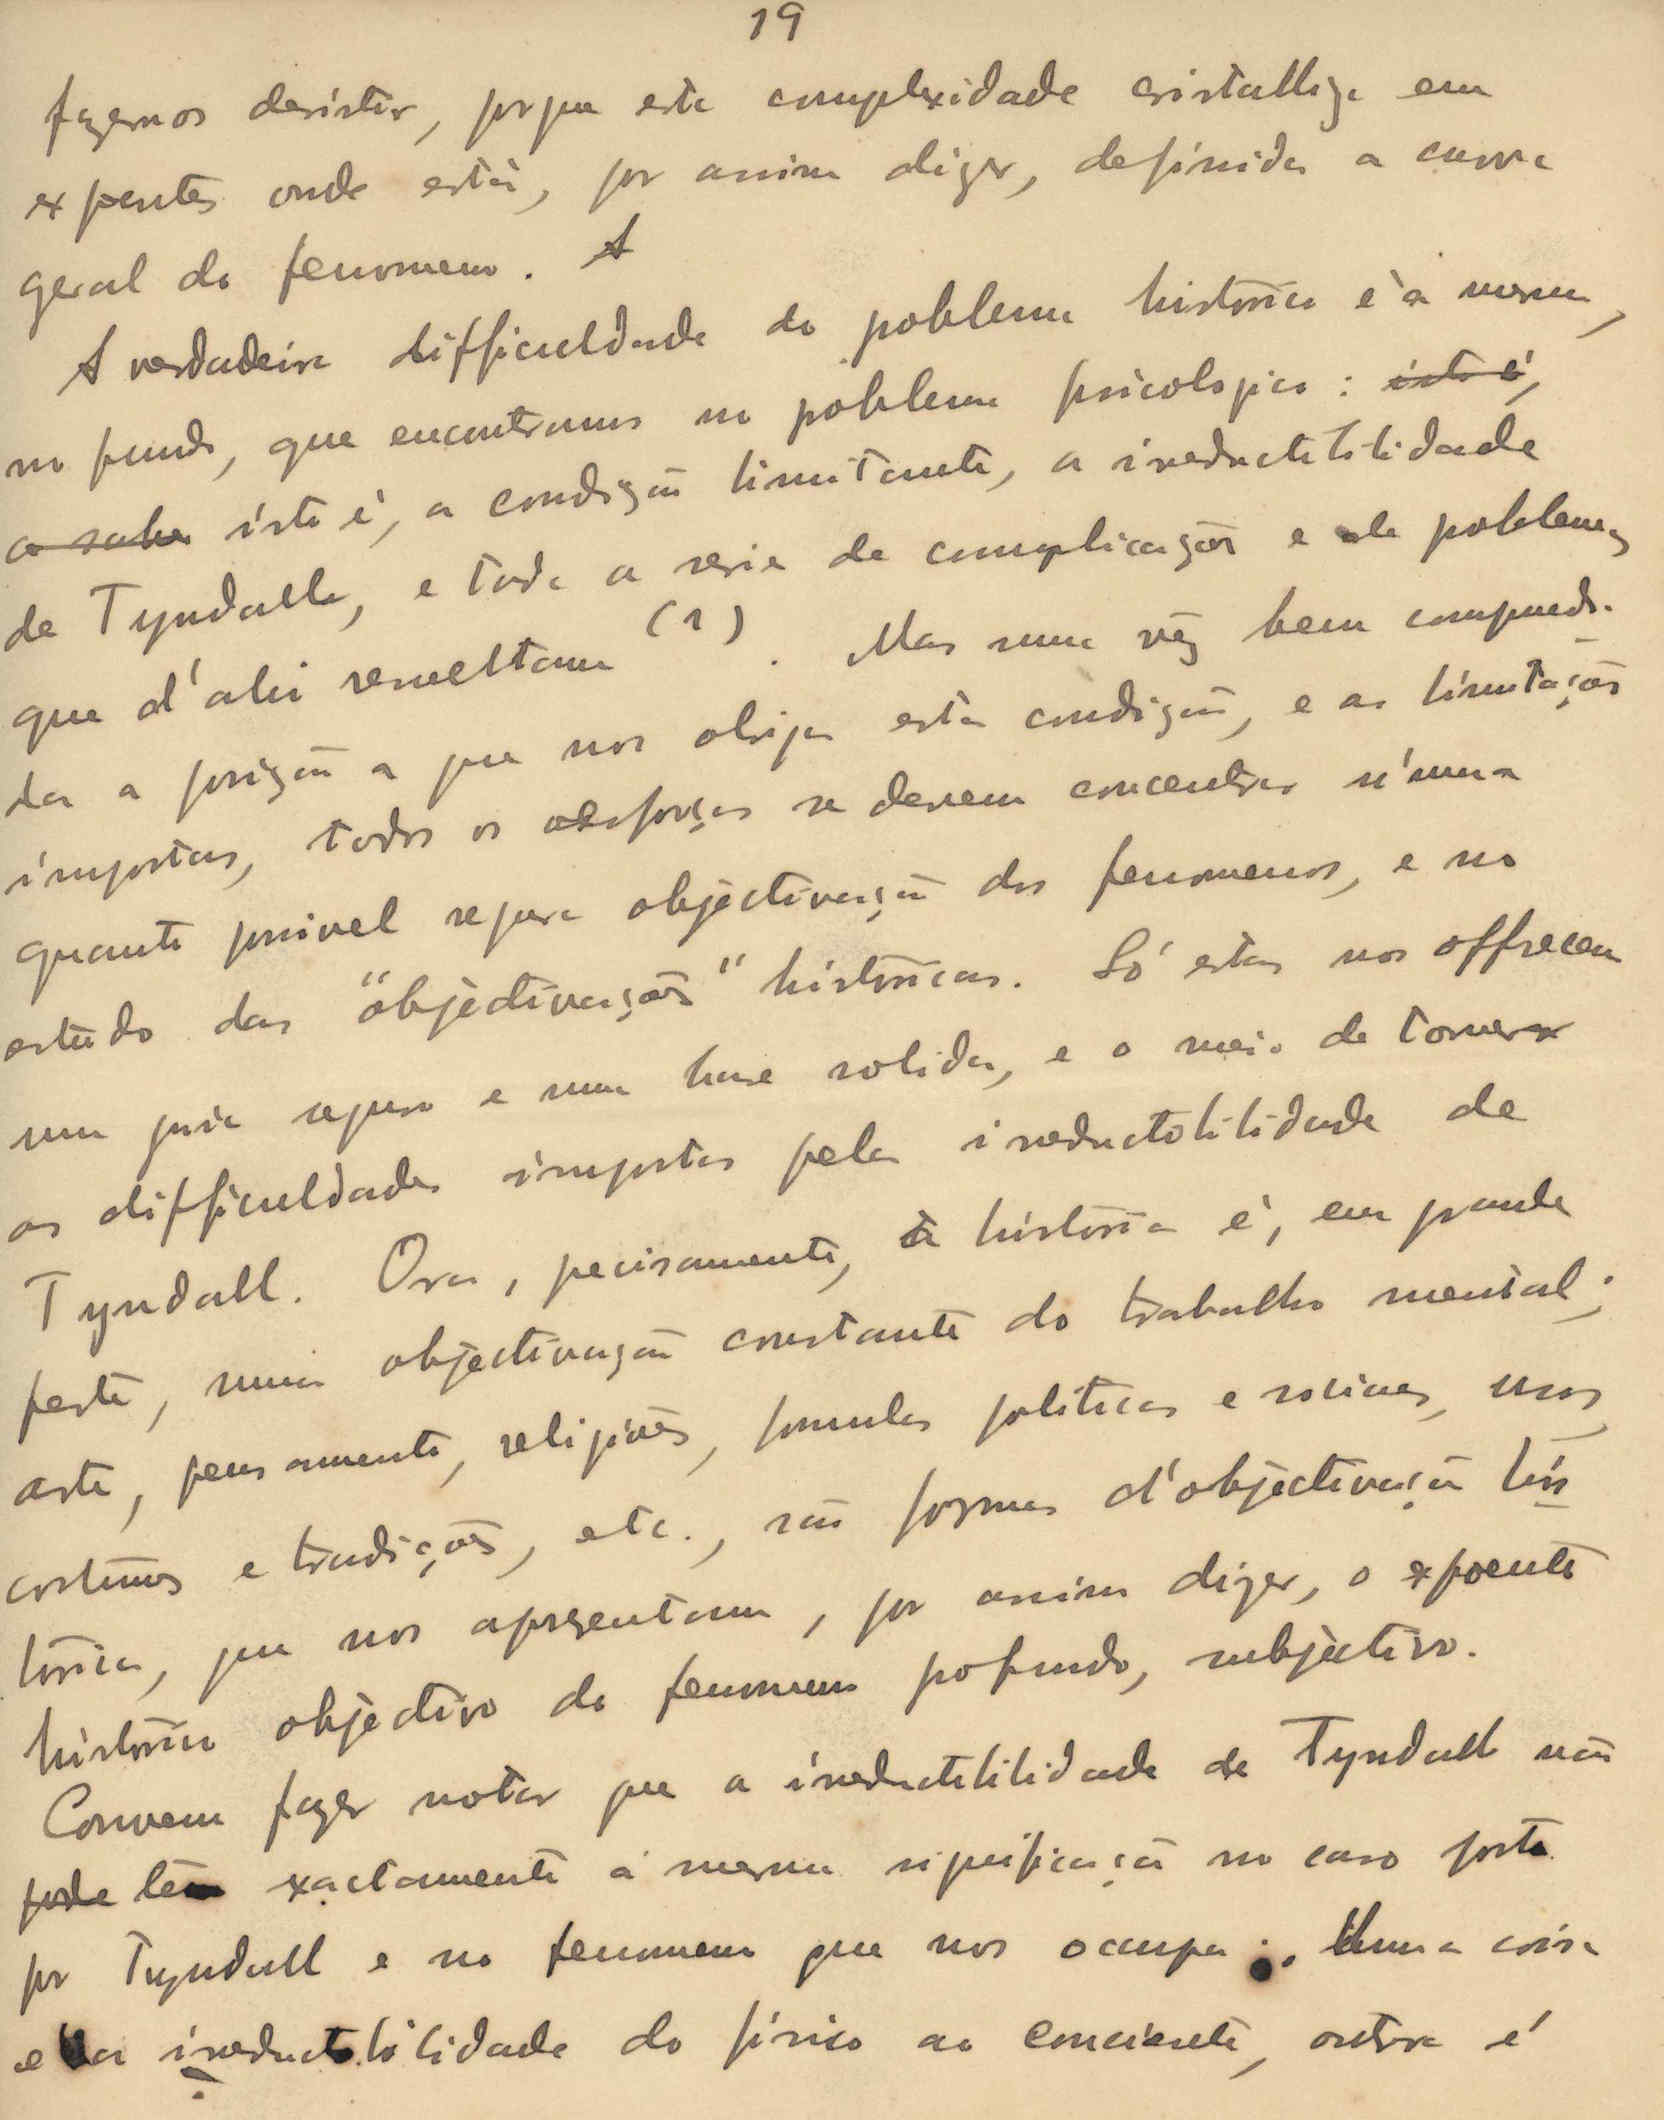 19
fazernos desistir, porque esta complexidade cristalliza em
expoentes onde está, por assim dizer, definida a curva
geral do fenomeno. A
A verdadeira difficuldade do problema historico é a mesma,
no fundo, que encontramos no problema psicologico: isto é,
a saber isto é, a condição limitante, a irreductibilidade
de Tyndall, e toda a serie de complicações e de problemas
que d'ahi resultam (1). Mas uma vez bem comprendi-
da a posição a que nos obriga esta condição, e as limitações
impostas, todos os esforços se devem concentrar n'uma
quanto possivel segura objectivação dos fenomenos, e no
estudo das "objectivações" históricas. Só estas nos offrecem
um guia seguro e uma base solida, e o meio de tornear
as difficuldades impostas pela irreductibilidade de
Tyndall. Ora, precisamente, a história é, em grande
parte, uma objectivação constante do trabalho mental;
arte, pensamento, religiões, formulas politicas e sociaes, usos,
costumes e tradições, etc., são formas d'objectivação his
tórica, que nos apresentam, por assim dizer, o expoente
histórico objectivo do fenomeno profundo, subjectivo.
Convem fazer notar que a irreductibilidade de Tyndall não
pode ter exactamente a mesma significação no caso posto
por Tyndall e no fenomeno que nos ocupa. Uma coisa
e a irreductibilidade do físico ao conciente, outra é